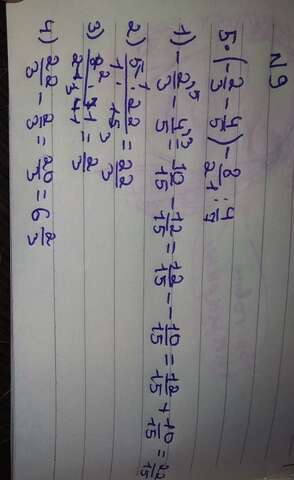 N9
5·(-2/3 - 4/5) - 8/21 : 4/7
1) -2\5/3 - 4\3/5 = 10/15 - 12/15 = 12/15 - - 10/15 = 12/15 + 10/15 = 22/15
2) 5¹/1 · 22/15₃ = 22/3
3) 8²/21₃ · 7¹/4₁ = 2/3
4) 22/3 - 2/3 = 20/3 = 6 2/3